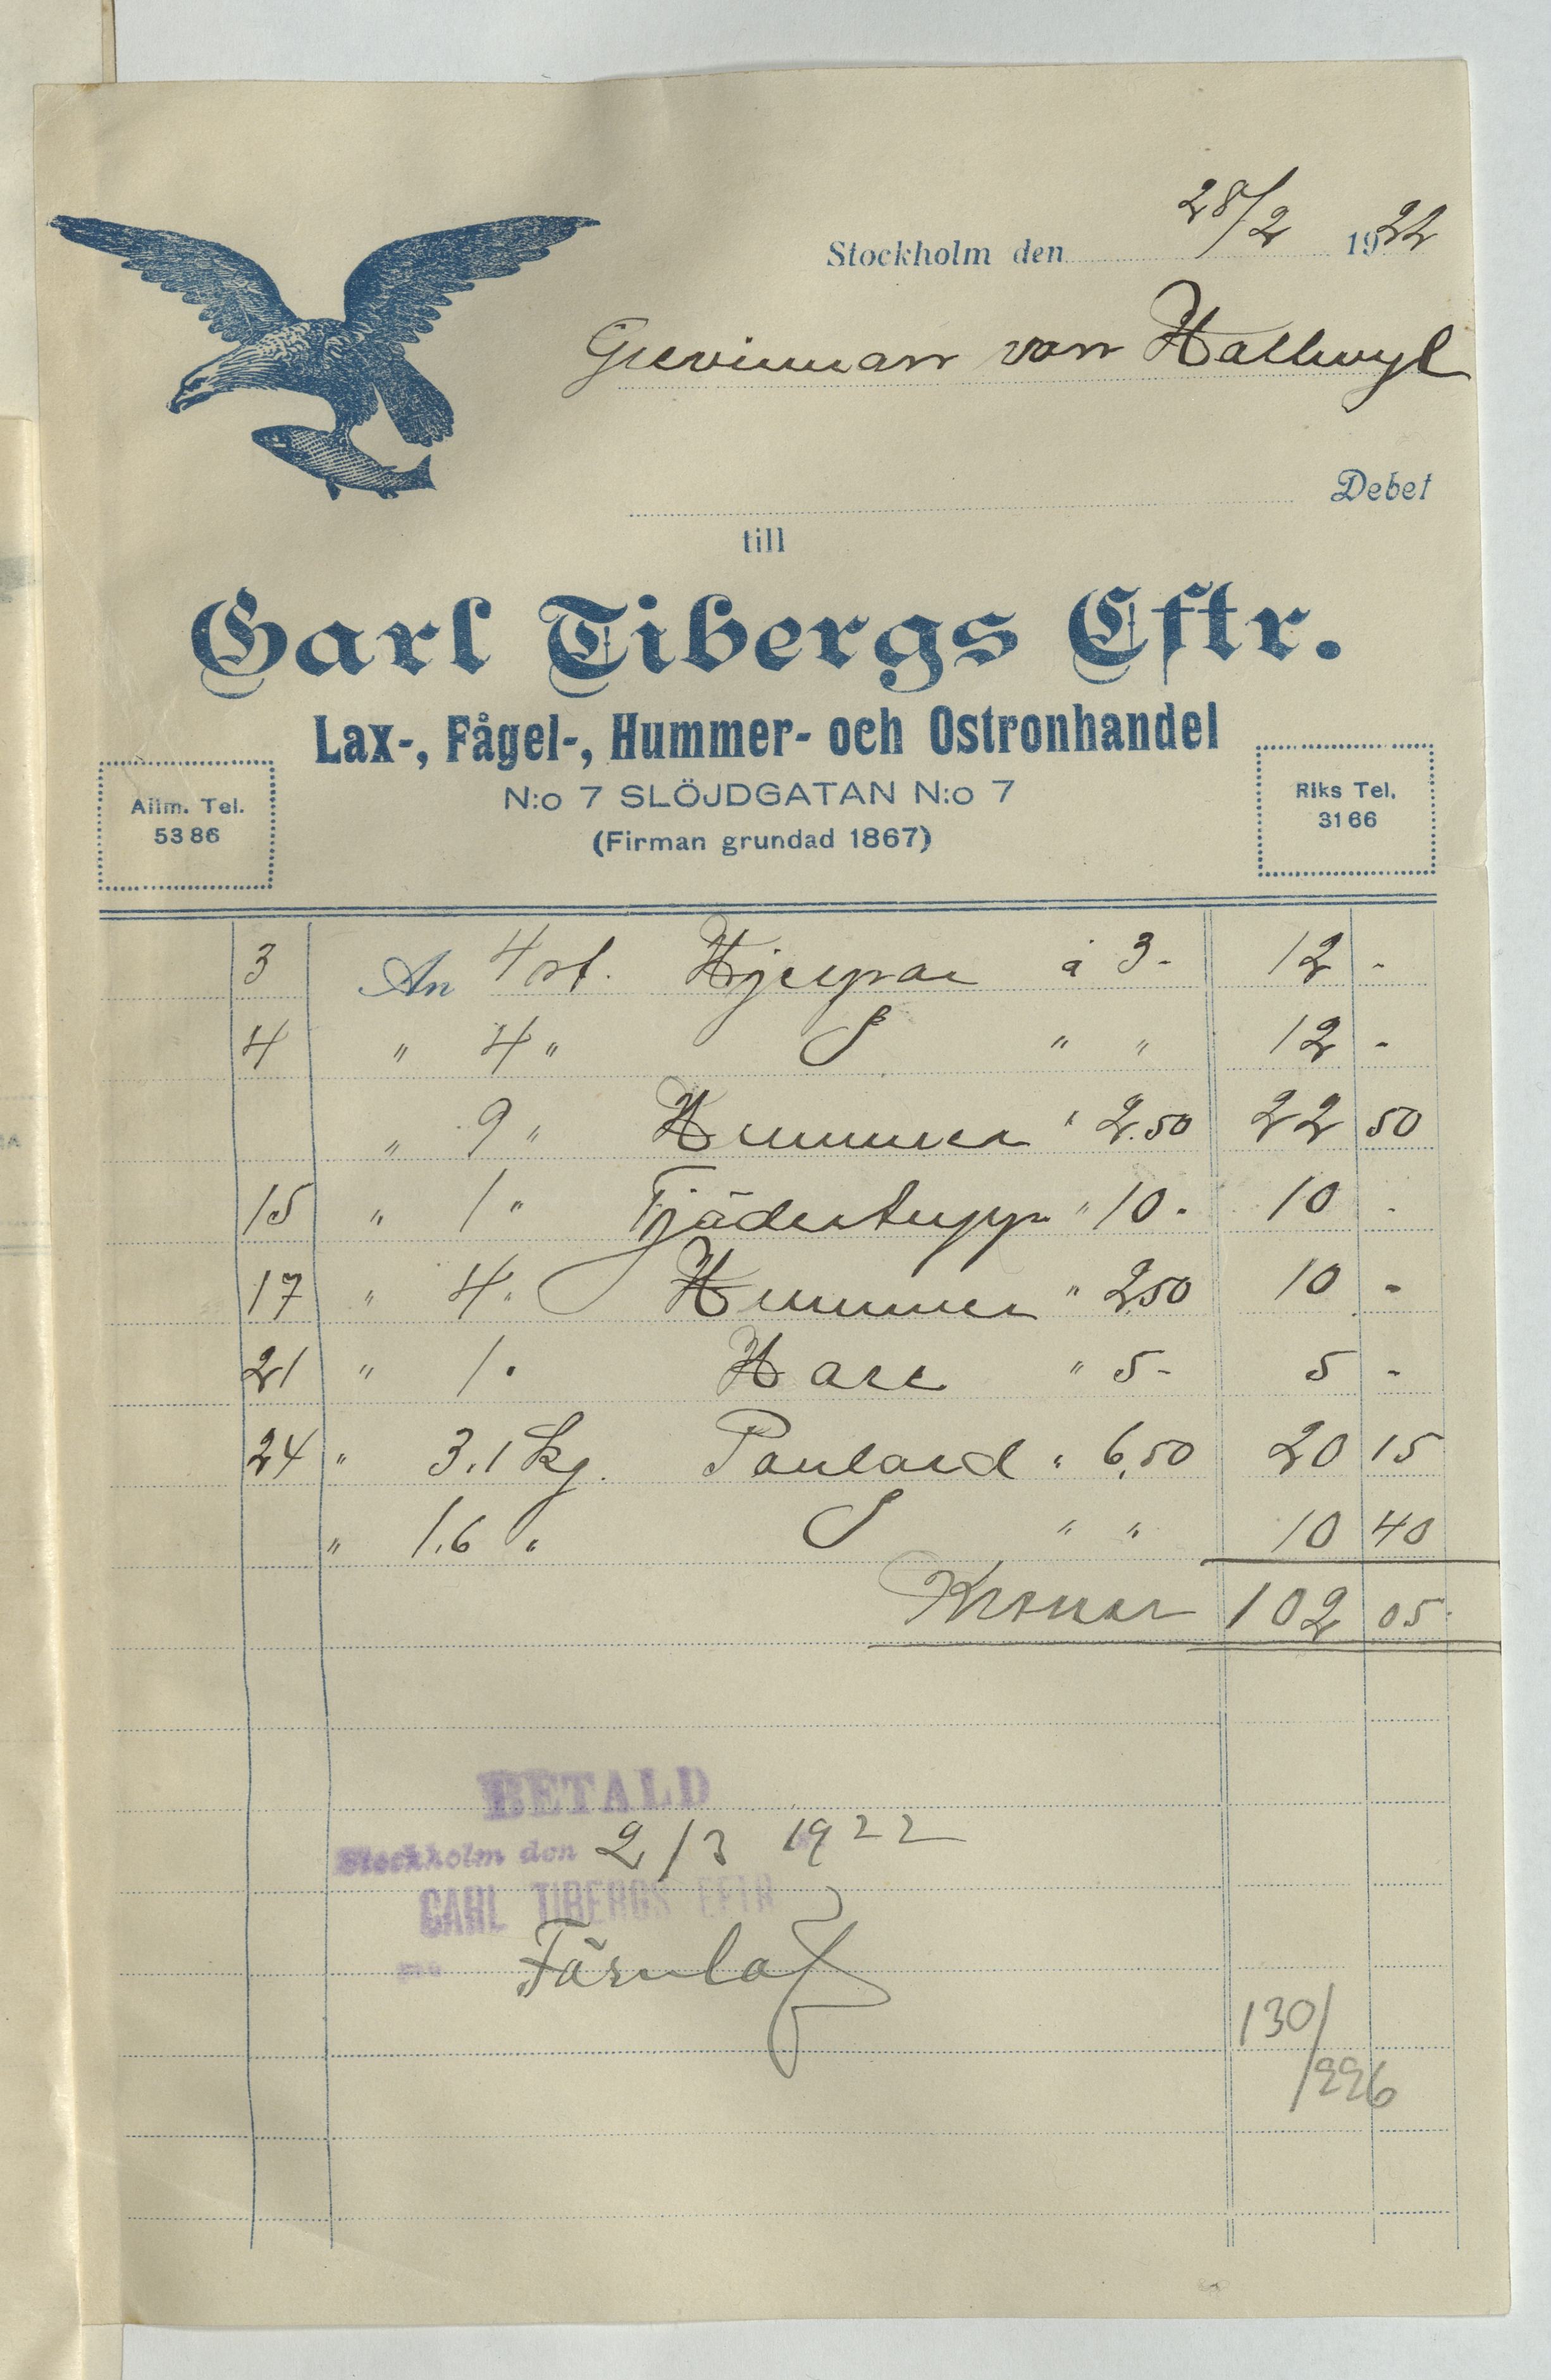 Stockholm den 28/2 1922
Grevinnan von Hallwyl
Debet
till
Carl Tibergs Eftr.
Lax-, Fågel-, Hummer- och Ostronhandel
N:o 7 SLÖJDGATAN N:o 7
(Firman grundad 1867)
Allm. Tel.
5386
Riks Tel.
3166
3 An 4 st. Hjerpar à 3- 12 -
4 " 4 " S " " 12 -
" 9 " Hummer " 2.50 22 50
15 " 1 " Tjädertupp " 10- 10 -
17 " 4 " Hummer " 2.50 10 -
21 " 1 " Hare " 5- 5 -
24 " 3.1 kg. Poulard " 6,50 20 15
" 1.6 " S " " 10 40
Kronor 102 05
BETALD
Stockholm den 2/3 1922
CARL TIBERGS EFTR
130/
/226